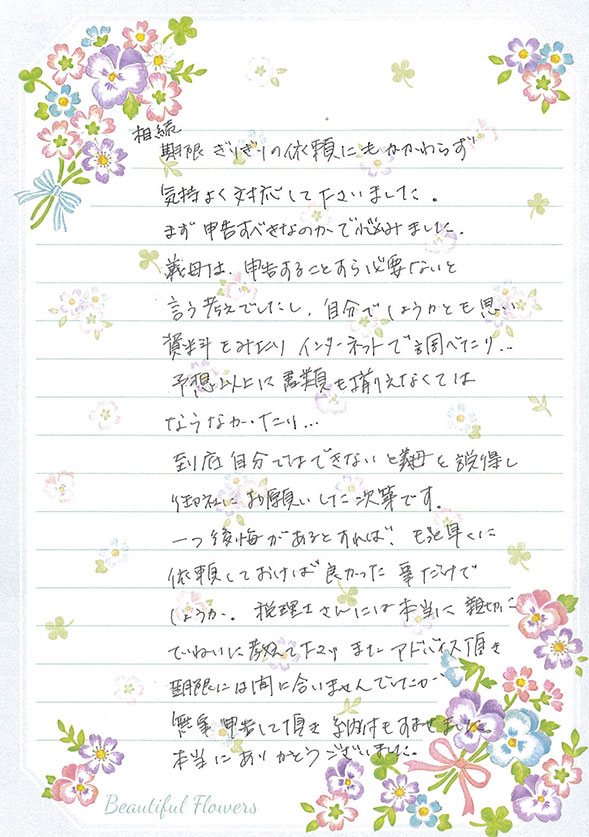 相続
期限ぎりぎりの依頼にもかかわらず
気持よく対応して下さいました。
まず申告すべきなのかで悩みました。
義母は、申告することすら必要ないと
言う考えでしたし、自分でしようかとも思い
資料をみたり インターネットで調べたり…
予想以上に書類も揃えなくては
ならなかったり…
到底自分ではできないと義母を説得し
御社にお願いした次第です。
一つ後悔があるとすれば、もっと早くに
依頼しておけば良かった事だけで
しょうか。税理士さんには本当に親切に
ていねいに教えて下さり またアドバイス頂き
期限には間に合いませんでしたが
無事申告して頂き 納付もすませました。
本当にありがとうございました。
Beautiful Flowers